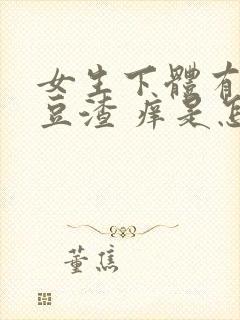 女生下體有
豆渣 痒是怎
董焦